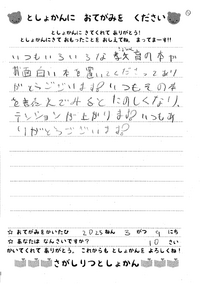 としょかんに おてがみを ください
としょかんに きてくれて ありがとう!
としょかんにきて おもったことを おしえてね。まってまーす!!
いつもいろいろな 本が
面白い本を置いてくださってあり
がとうございます いつもその本
を読んでみるとたのしくなり、
テンションが上がります いつもあ
りがとうございます
☆ おてがみをかいたひ 2025 ねん 3 がつ 9 にち
☆ あなたは なんさいですか? 10 さい
おてがみ ありがとう。これからも としょかんを よろしくね!
さがしりつとしょかん